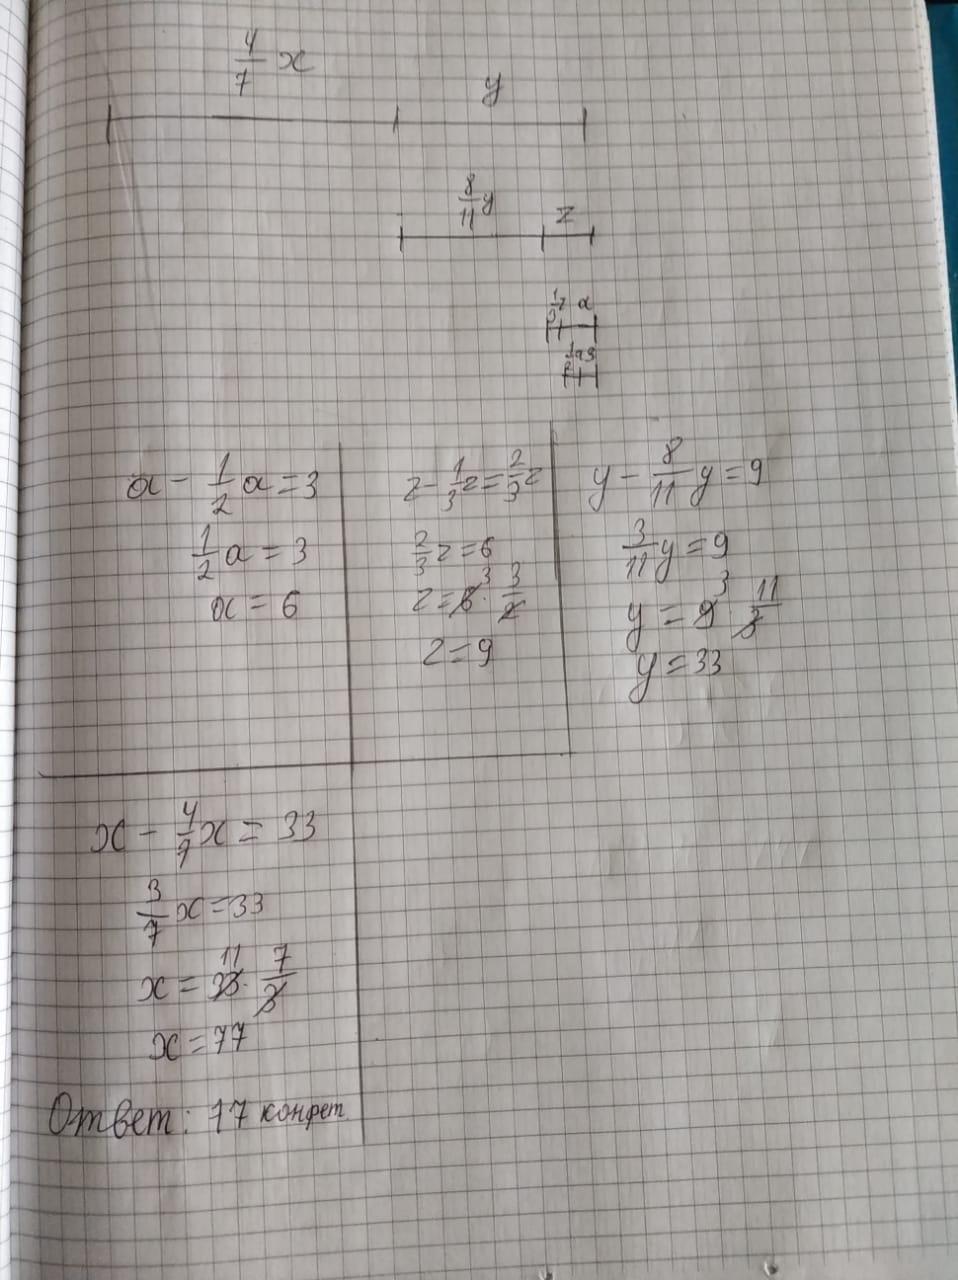 4/7 x
y
8/11 y
z
1/3 z a
1/2 a 3
a - 1/2 a = 3
1/2 a = 3
a = 6
z - 1/3 z = 2/3 z
2/3 z = 6
z = 6 3 · 3/2
z = 9
y - 8/11 y = 9
3/11 y = 9
y = 9 3 · 11/3
y = 33
x - 4/7 x = 33
3/7 x = 33
x = 33 11 · 7/3
x = 77
Ответ: 77 конфет.